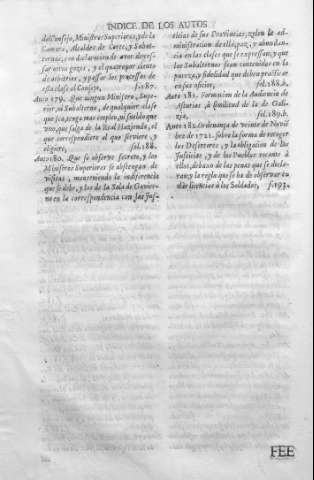 INDICE DE LOS AUTOS
del Consejo, Ministros Superiores, de la
Camara, Alcaldes de Corte, y Subal-
ternos, con declaracion de
otros gozes, y el
de arbitrios, y passar los processos de
esta clase al Consejo, fol.187.
Auto 179. Que ningun Ministro, Supe-
rior, ni Subalterno, de qualquier clase
que sea, tenga mas empleo, ni sueldo que
uno, que salga de la Real Hazienda, el
que correspondiere al que sirviere, y
eligiere, fol.188.
Auto 180. Que se observe secreto, y los
Ministros Superiores se abstengan de
visitas, manteniendo la indiferencia
que se debe, y los de la Sala de Govier-
no en la correspondencia con las Jus-
ticias de sus Provincias, zelen la ad-
ministracion de ellas, paz, y abundan-
cia en las clases que se expressan, y que
los Subalternos sean contenidos en la
pureza, y fidelidad que deben practicar
en sus oficios, fol.188.b.
Auto 181. Formacion de la Audiencia de
Asturias, à similitud de la de Gali-
zia, fol.189.b.
Auto 182. Ordenanza de veinte de Novie
bre de 1721. Sobre la forma de recoger
los Desertores, y la obligacion de las
Justicias, y de los Pueblos tocante à
ellos, debaxo de las penas que se decla-
ran; y la regla que se ha de observar en
dàr licencias à los Soldados, f.193.
FEE